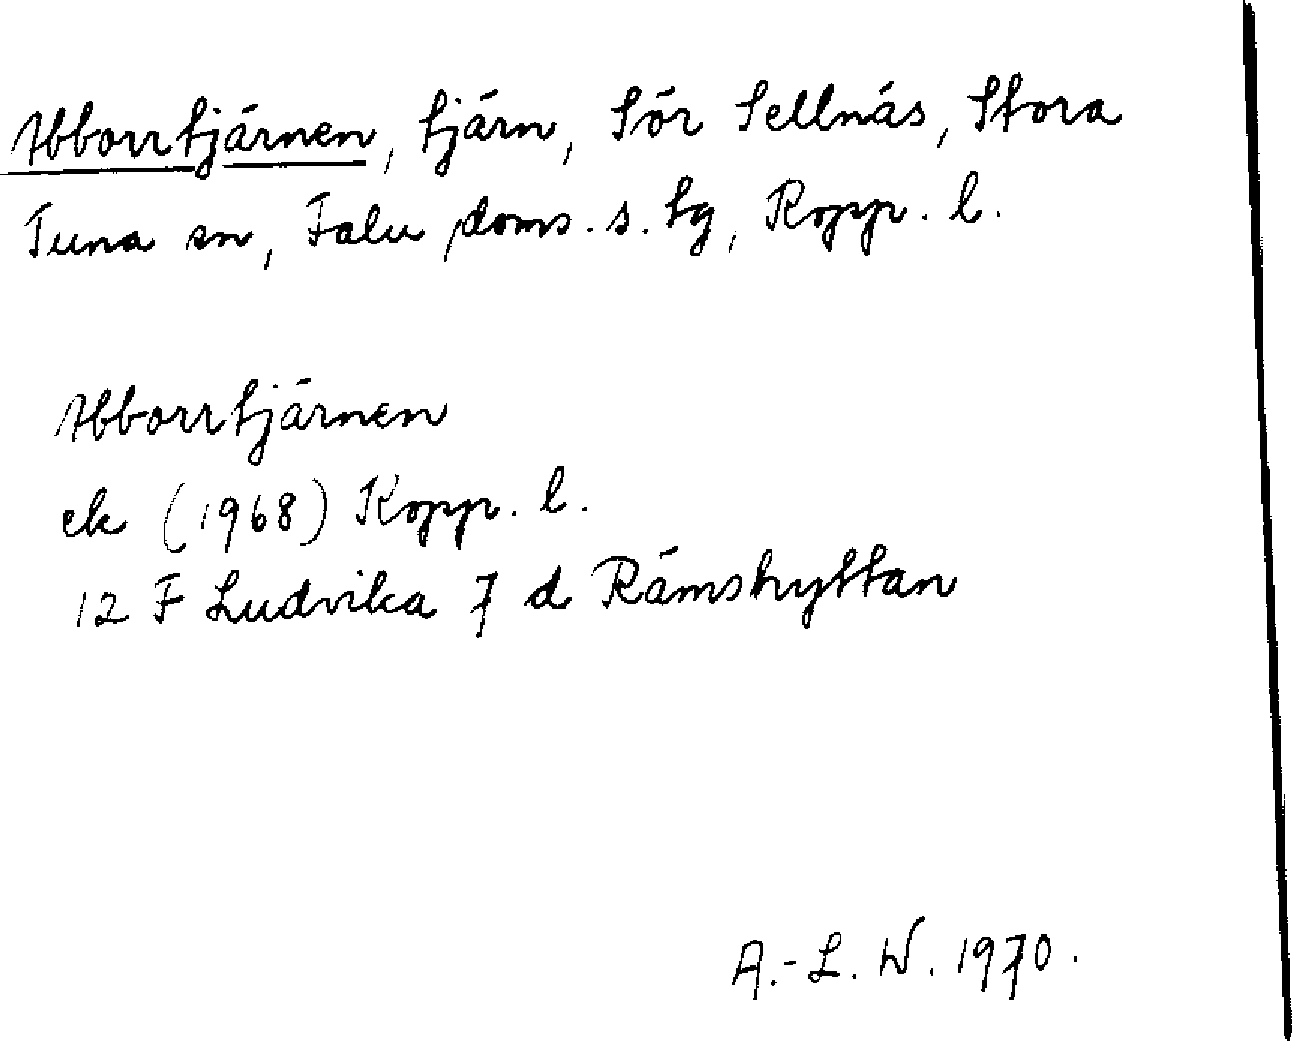 Abborrtjärnen, tjärn, Sör Sellnäs, Stora
Tuna sn, Falu doms.s. tg, Kopp. l.
Abborrtjärnen
ek (1968) Kopp. l.
12 F Ludvika 7 d Rämshyttan
A.-L. W. 1970.